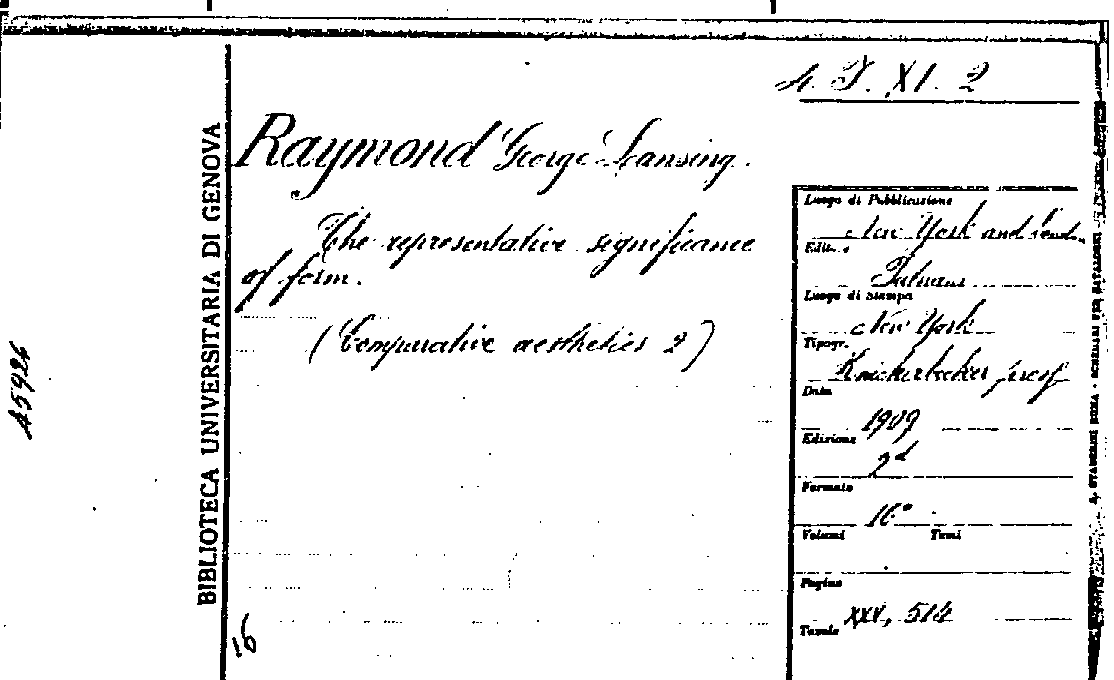 4. J. XI. 2
Raymond George Lansing.
The representative significance
of form.
(Comparative aesthetics 2)
BIBLIOTECA UNIVERSITARIA DI GENOVA
45926
16
Luogo di Pubblicazione
New York and Lond.
Edit.e
Putnam
Luogo di Stampa
New York
Tipogr.
Knickerbocker press
Data
1909
Edizione
2d
Formato
16°
Volumi Tomi
Pagine
XXV, 514
Tavole